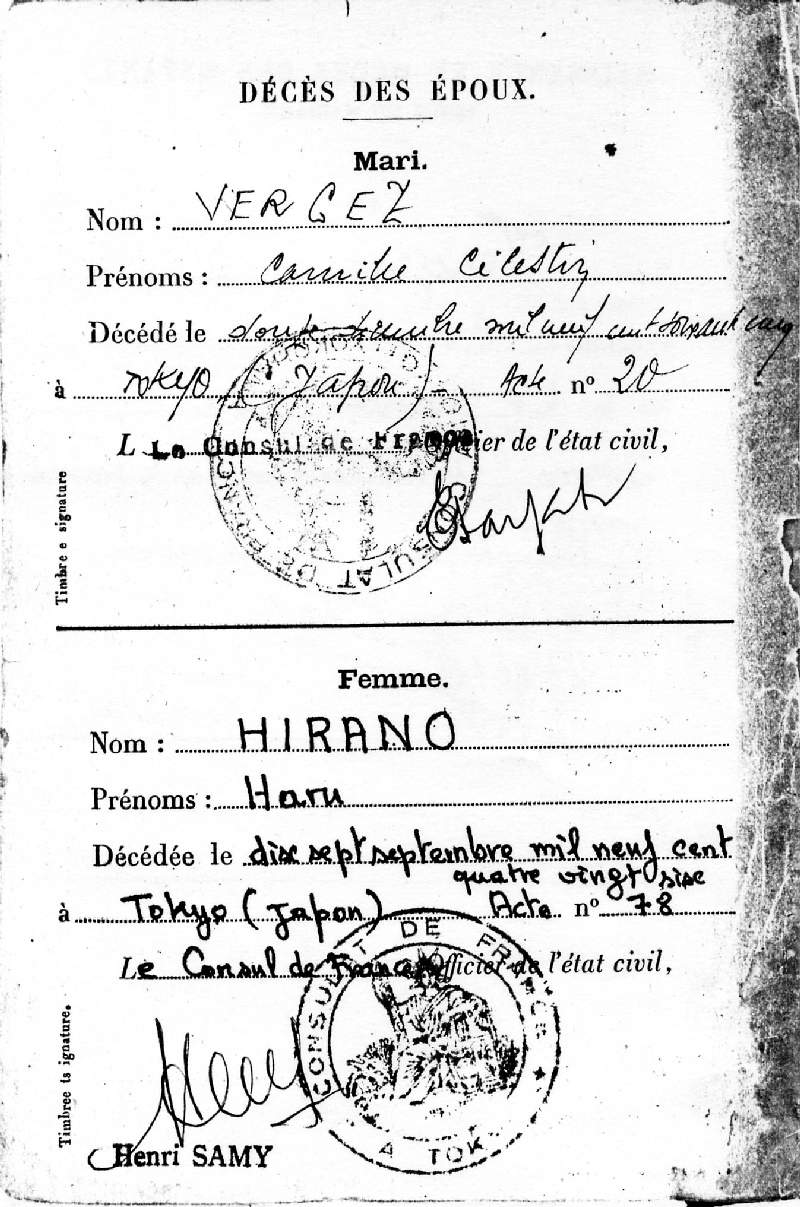 DÉCÈS DES ÉPOUX.
Mari.
Nom : VERGEZ
Prénoms : Camille Célestin
Décédé le mil neuf cent soixante cinq
à Tokyo (Japon) Acte nº 20
L Le Consul de France Officier de l'état civil,
CONSULAT DE FRANCE
Timbre e signature
Femme.
Nom : HIRANO
Prénoms : Haru
Décédée le dix sept septembre mil neuf cent
quatre vingt six
à Tokyo (Japon) Acte nº 78
Le Consul de France Officier de l'état civil,
CONSULAT DE FRANCE ★
A TOK
Timbree ts ignature.
Henri SAMY